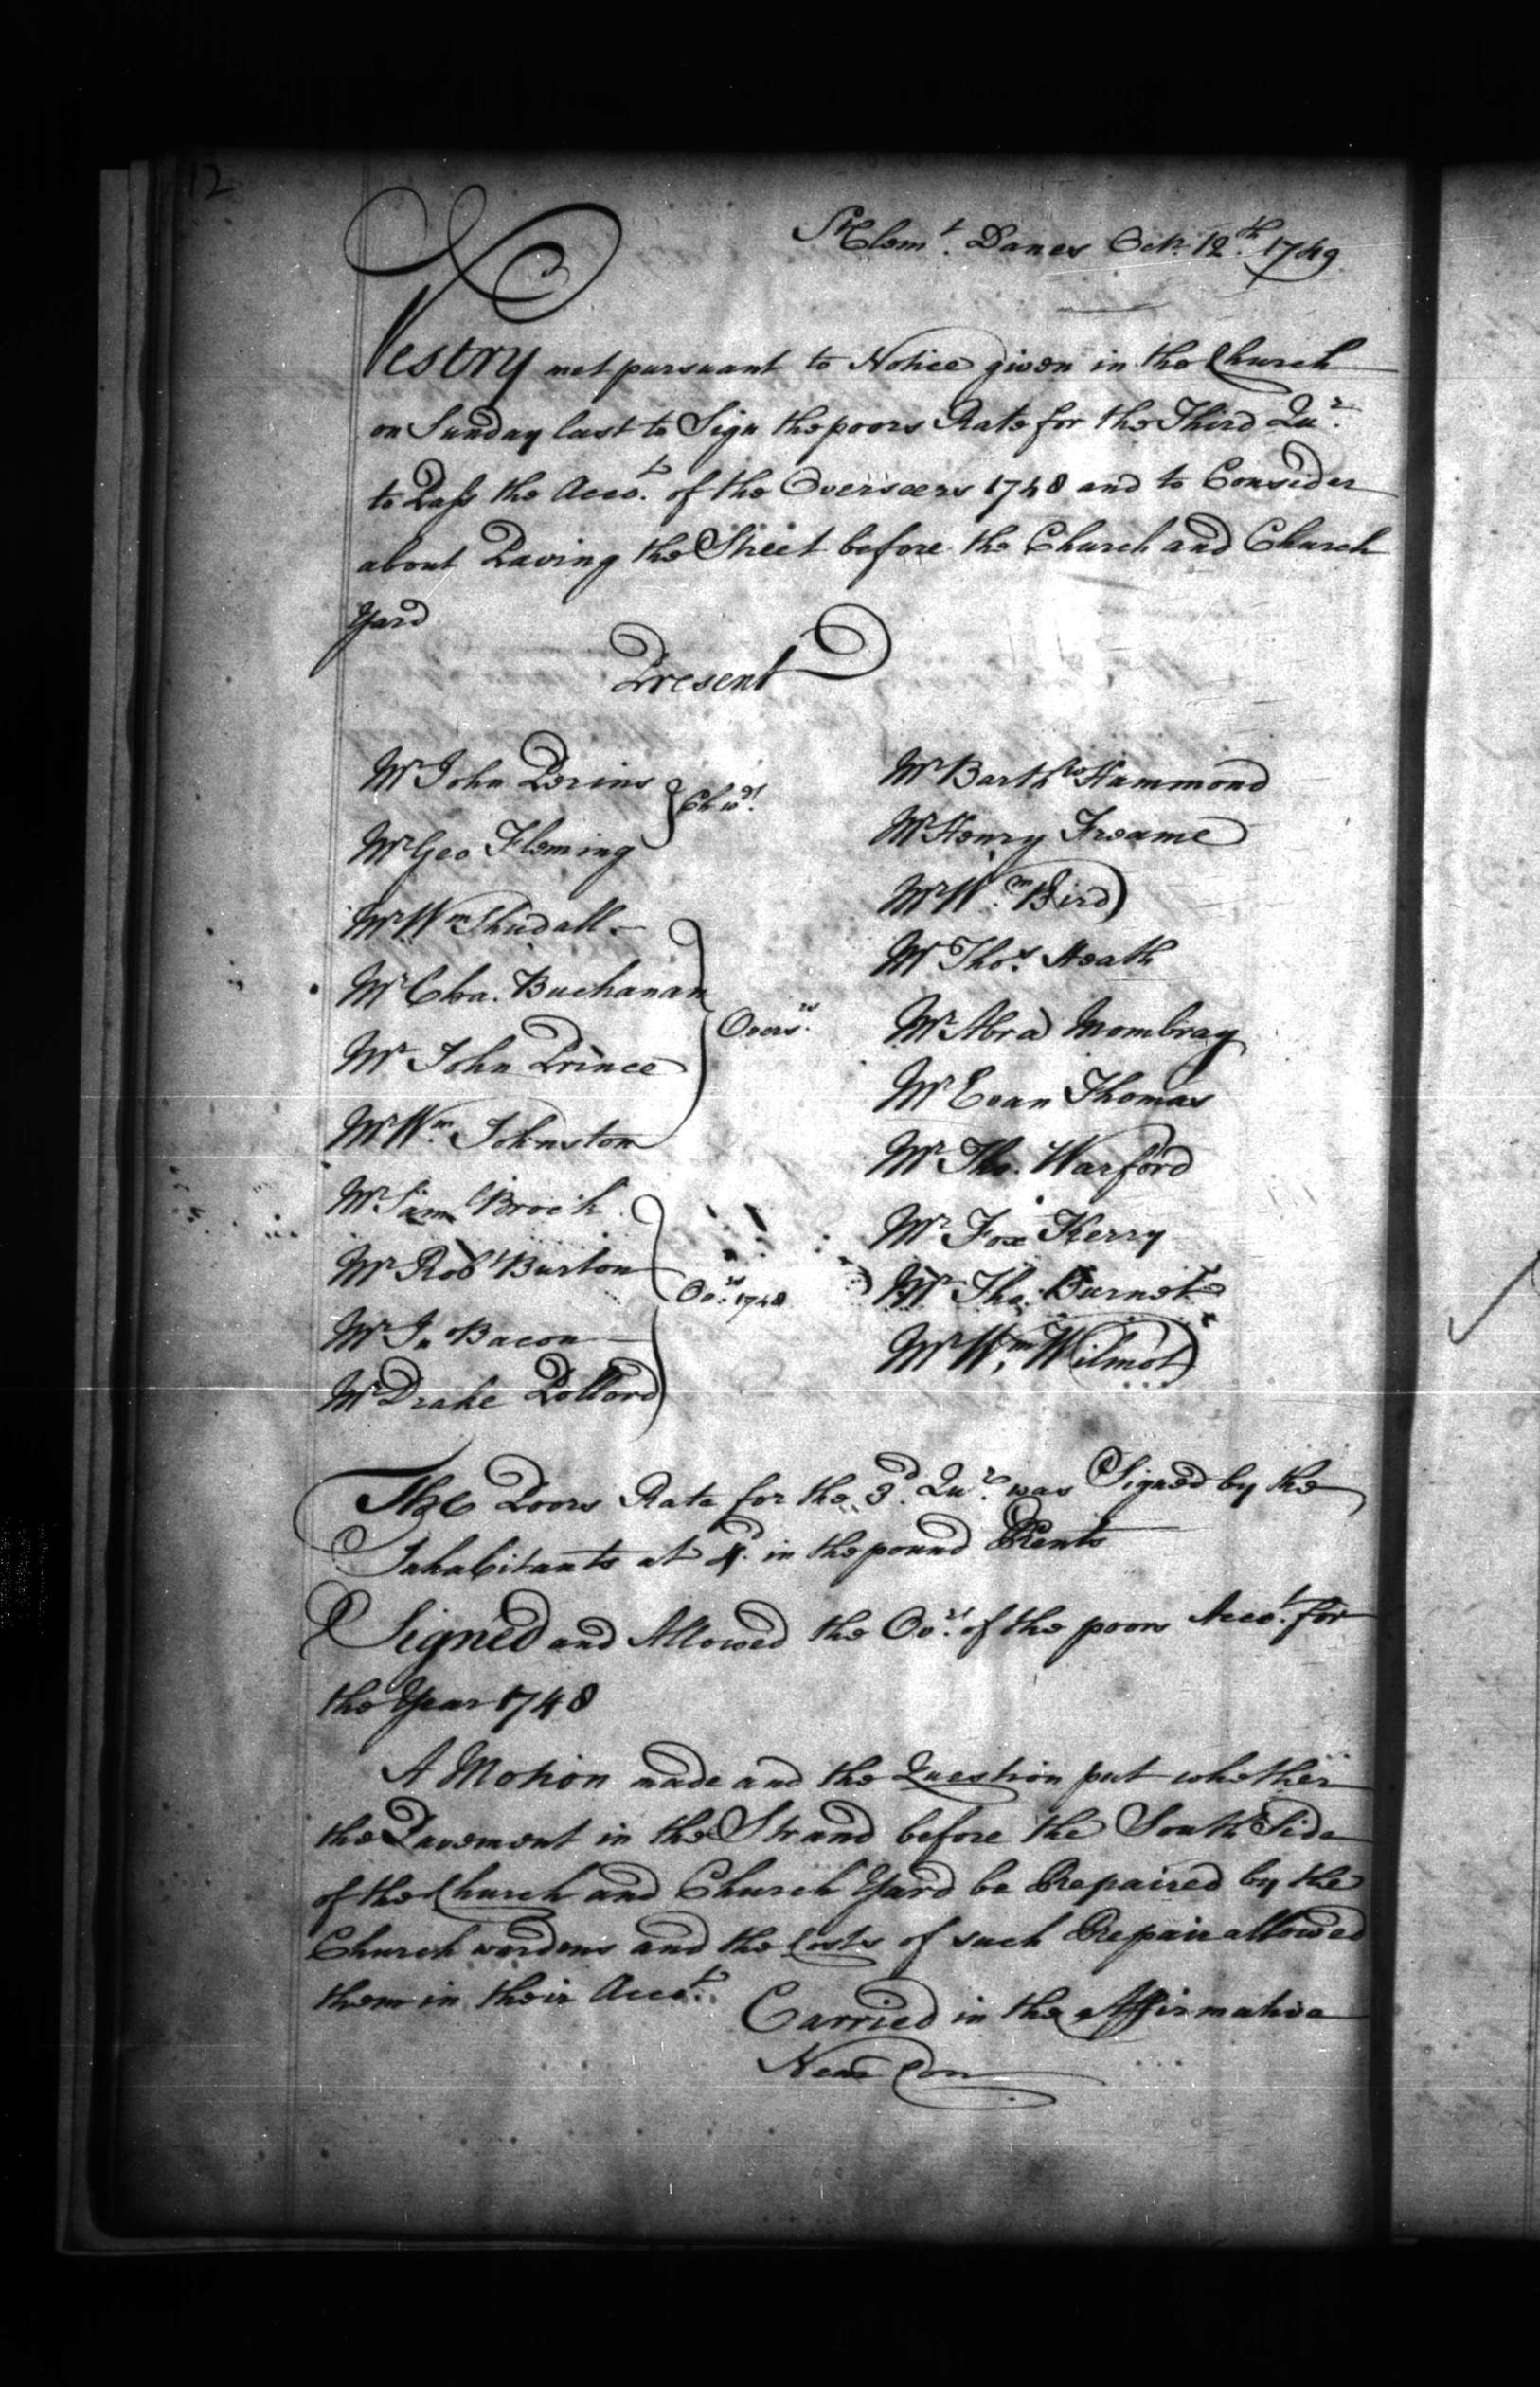 12
St Clemt. Danes Octr. 12th. 1749
Vestry met pursuant to Notice given in the Church
on Sunday last to Sign the poors Rate for the Third Qur.
to Pass the Acct. of the Overseers 1748 and to Consider
about Paving the Street before the Church and Church
Yard
Present
Mr John Perins
Mr Geo Fleming
Chwds.
Mr Wm
Mr Cha. Buchanan
Mr John Prince
Mr Wm. Johnston
Overs.rs
Mr Saml Brock
Mr Robt Burton
Mr Jn Bacon
Mr Drake Pollard
Ovrs. 1748
Mr Barthw Hammond
Mr Henry Freame
Mr Wm. Bird
Mr Thos. Heath
Mr Abra Mombray
Mr Evan Thomas
Mr Tho. Warford
Mr Fox Kerry
Mr Tho. Burnet
Mr Wm. Wilmot
The Poors Rate for the 3d. Qur. was Signed by the
Inhabitants at 4d. in the pound Rents
Signed and Allowed the Ovrs. of the poors Acct. for
the Year 1748
A Motion made and the Question put whether
the Pavement in the Strand before the South Side
of the Church and Church Yard be Repaired by the
Church wardens and the Costs of such Repair allowed
them in their Acct.
Carried in the Affirmative
Nem Con